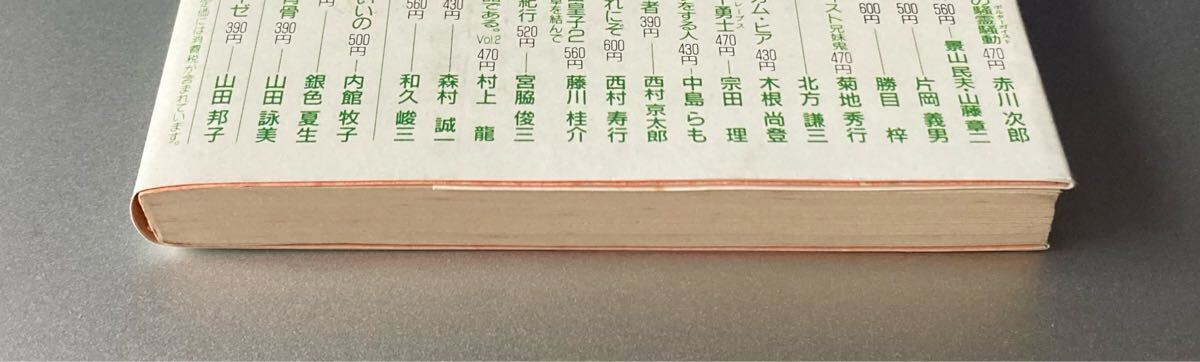 の騒霊騒動 ポルターガイスト 470円 赤川 次郎
560円 景山民夫・山藤章二
500円 片岡 義男
600円 勝目 梓
スト兄妹鬼 470円 菊地 秀行
北方 謙三
アム・ヒア 430円 木根 尚登
勇士 470円 宗田 理
をする人 430円 中島 らも
者 390円 西村 京太郎
れにぞ 600円 西村 寿行
皇子2 560円 藤川 桂介
紀行 520円 宮脇 俊三
である。 Vol.2 470円 村上 龍
430円 森村 誠一
560円 和久 峻三
いいの 500円 内館 牧子
390円 銀色 夏生
背骨 390円 山田 詠美
ゼ 390円 山田 邦子
には消費税が含まれています。